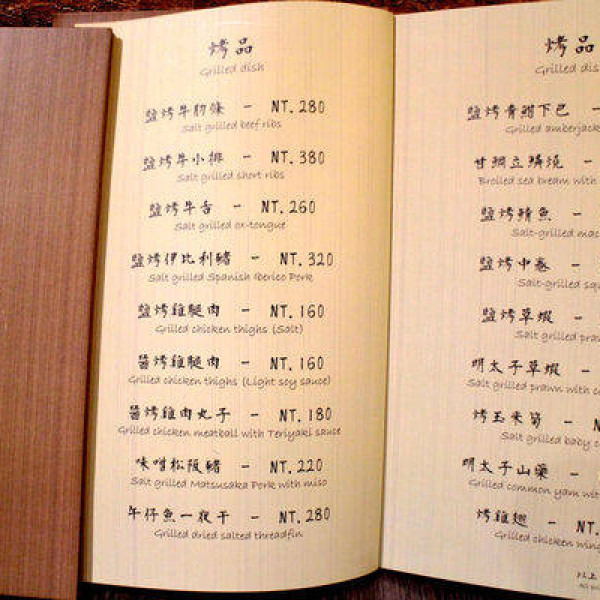 烤品
Grilled dish
鹽烤牛肋條 - NT. 280
Salt grilled beef ribs
鹽烤牛小排 - NT. 380
Salt grilled short ribs
鹽烤牛舌 - NT. 260
Salt grilled ox-tongue
鹽烤伊比利豬 - NT. 320
Salt grilled Spanish Iberico Pork
鹽烤雞腿肉 - NT. 160
Grilled chicken thighs (Salt)
醬烤雞腿肉 - NT. 160
Grilled chicken thighs (Light soy sauce)
醬烤雞肉丸子 - NT. 180
Grilled chicken meatball with Teriyaki sauce
味噌松阪豬 - NT. 220
Salt grilled Matsusaka Pork with miso
午仔魚一夜干 - NT. 280
Grilled dried salted threadfin
烤品
Grilled dis
鹽烤青魽下巴 -
Grilled amberjack
甘鯛立鱗燒 -
Broiled sea bream with
鹽烤鯖魚 -
Salt-grilled mac
鹽烤中卷 -
Salt-grilled squ
鹽烤草蝦 -
Salt grilled pra
明太子草蝦 -
Salt grilled prawn with c
烤玉米筍 - N
Salt grilled baby c
明太子山藥 -
Grilled common yam with
烤雞翅 - NT.
Grilled chicken wing
以上